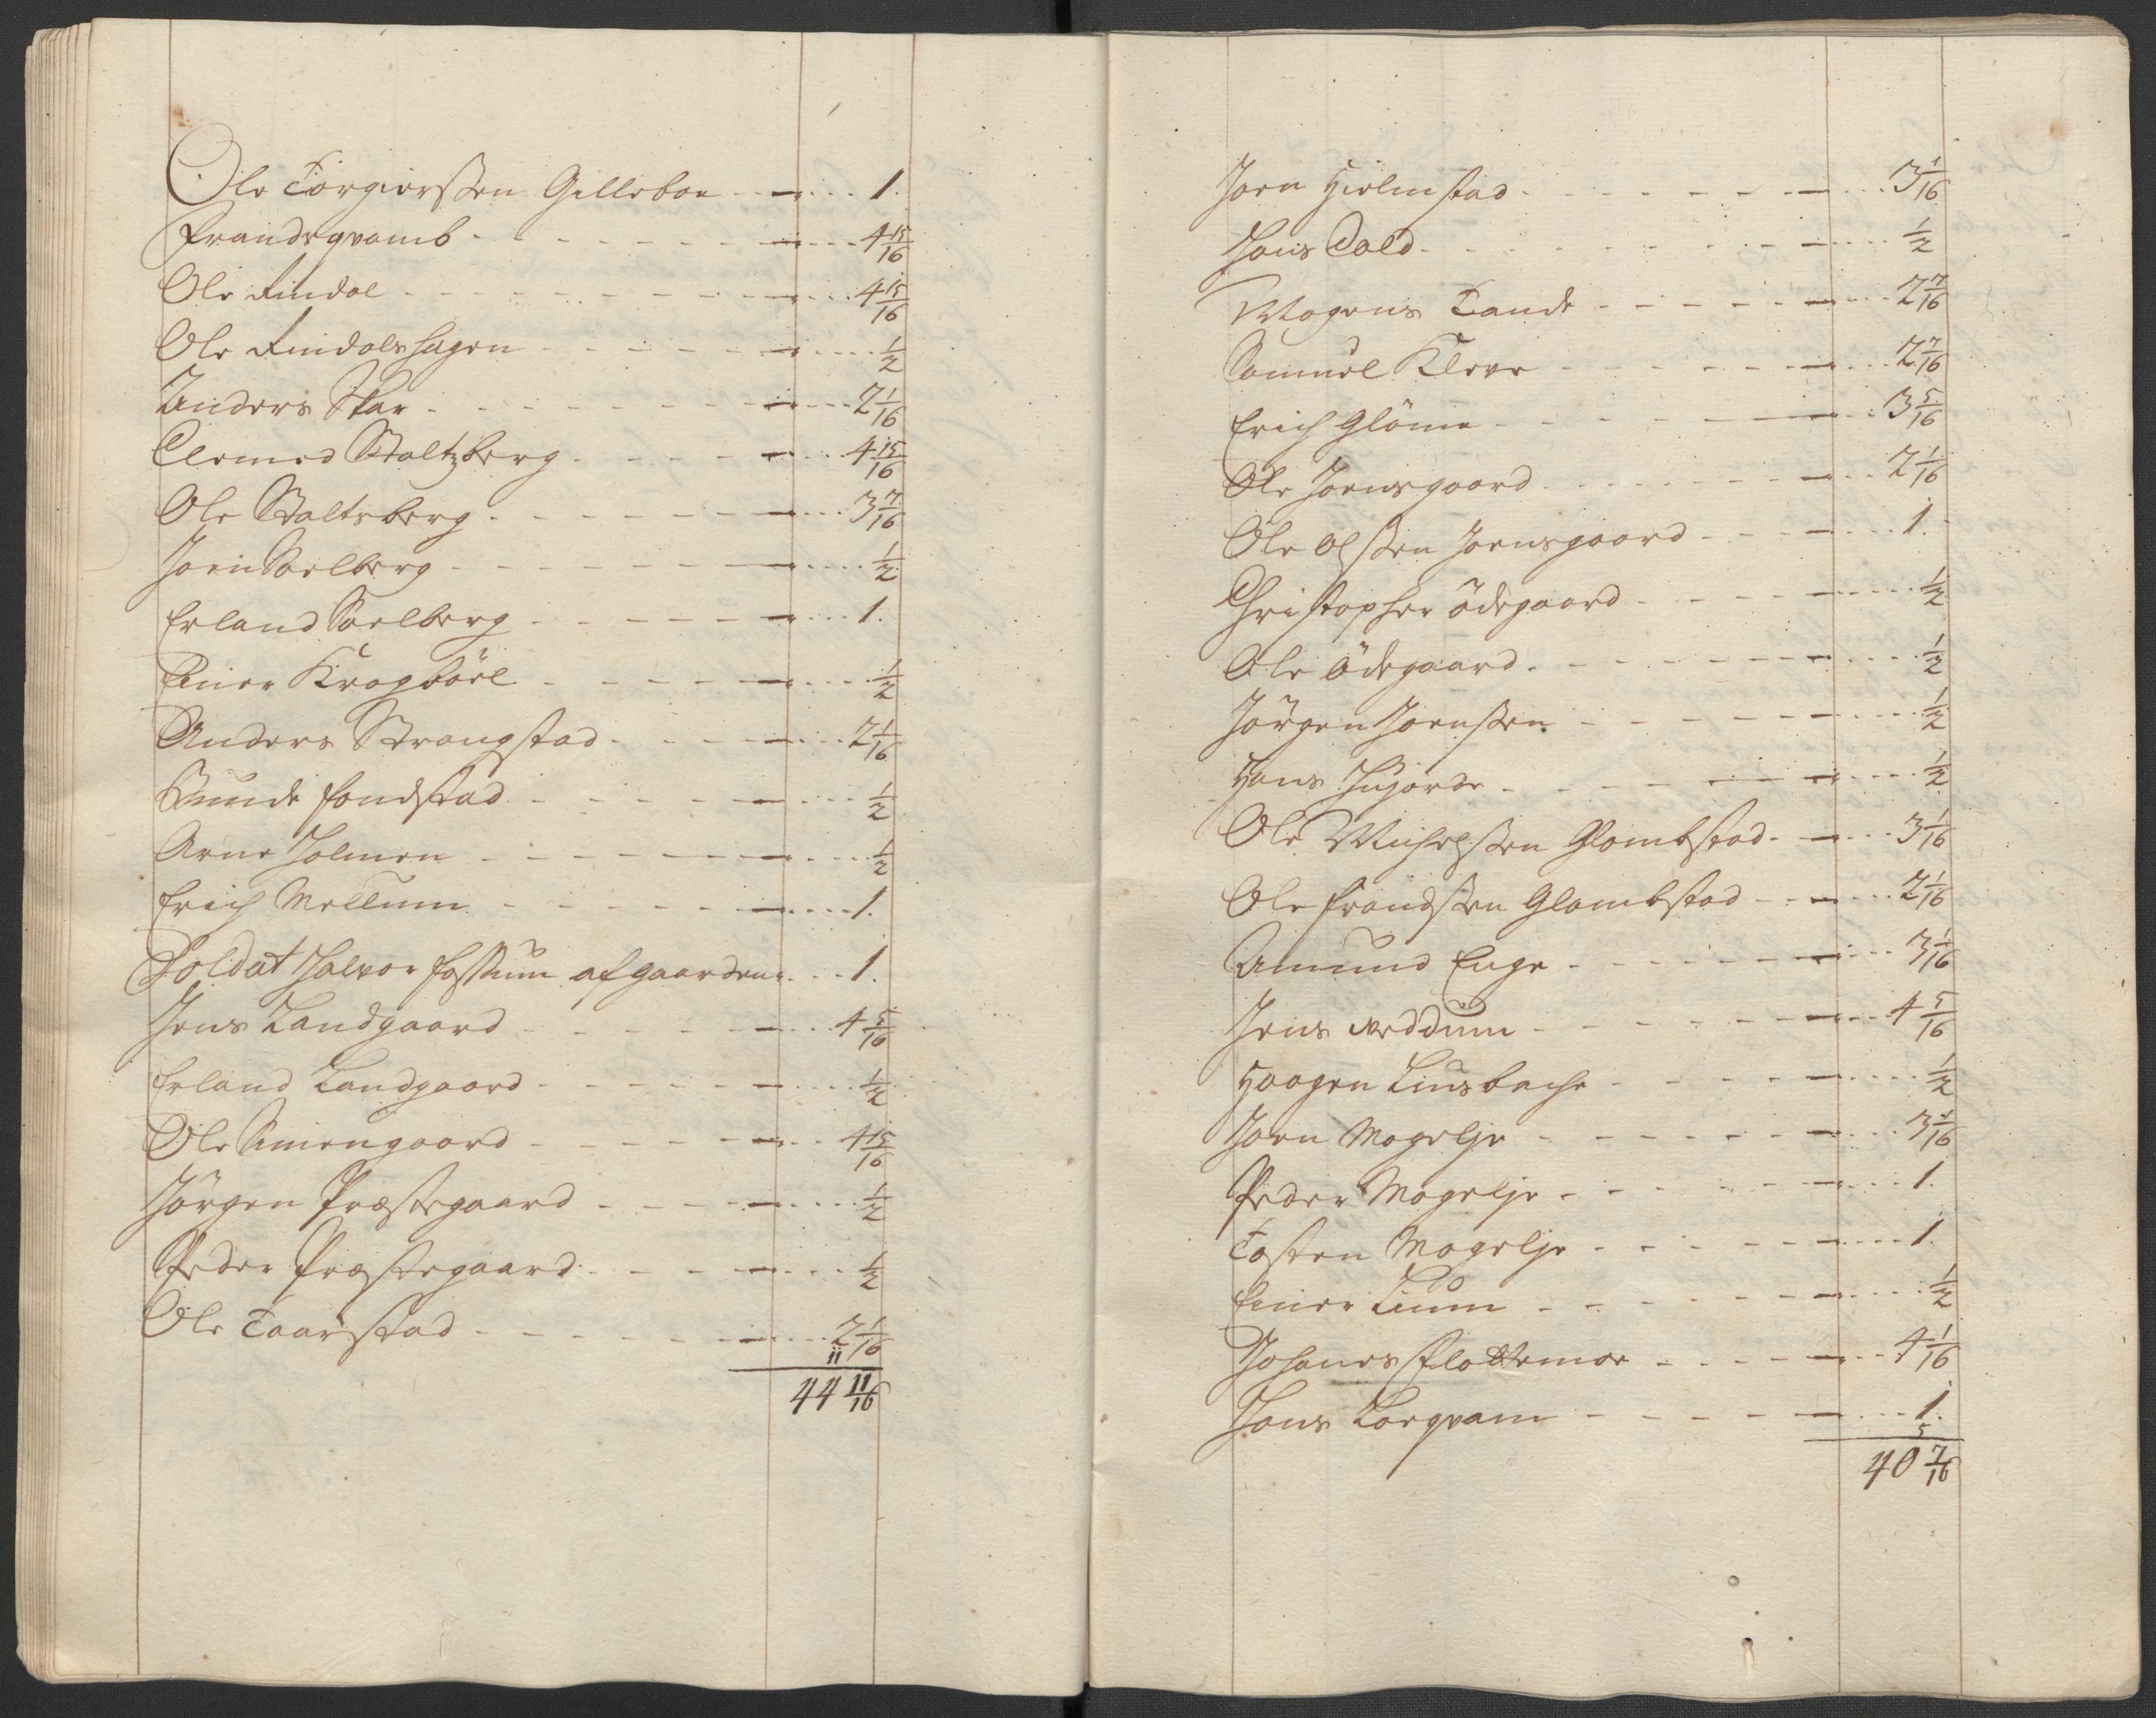 Ole Torgierssen Gilleboe 1.
Frandsqvamb 4 15/16
Ole Rindal 4 15/16
Ole Rindalshagen 1/2
Anders Skar 2 1/16
Clemed Staltzberg 4 15/16
Ole Staltsberg 3 7/16
Joen Soelberg 1/2
Erland Soelberg 1.
Einer Kragböel 1/2
Anders Strangstad 2 1/16
Gunde fondstad 1/2
Arne Holmen 1/2
Erich Mellum 1.
Soldat Halvor fossum af gaarden 1.
Jens Landgaard 4 5/16
Erland Landgaard 1/2
Ole Simengaard 4 15/16
Jörgen Præstegaard 1/2
Peder Præstegaard 1/2
Ole Taarstad 2 1/16
11
44 11/16
Joen Hielmstad 3 1/16
Hans Cold 1/2
Mogens Tande 2 7/16
Samuel Kleve 2 7/16
Erich Glöme 3 5/16
Ole Joensgaard 2 1/16
Ole Olssen Joensgaard 1.
Christopher Ödegaard 1/2
Ole Ödegaard 1/2
Jörgen Joenssen 1/2
Hans 1/2
Ole Michelssen Glombstad 3 1/16
Ole frandssen Glombstad 2 1/16
Amund Enge 3 1/16
Jens Veddum 4 5/16
Haagen Liusbache 1/2
Joen Mogelje 3 1/16
Peder Mogelje 1.
Tosten Mogelje 1.
Einer Lium 1/2
Johanes Flottemoe 4 1/16
Hans Lorqvam 1.
5
40 7/16